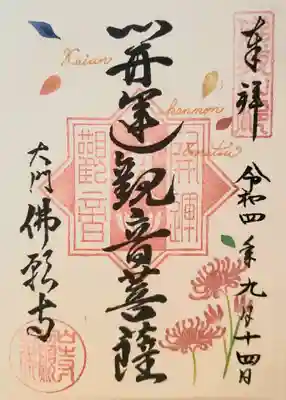 奉拝
令和四年九月十四日
開運観音菩薩
Kaiun
kannon
Bosatsu
開運
觀音
大門佛願寺